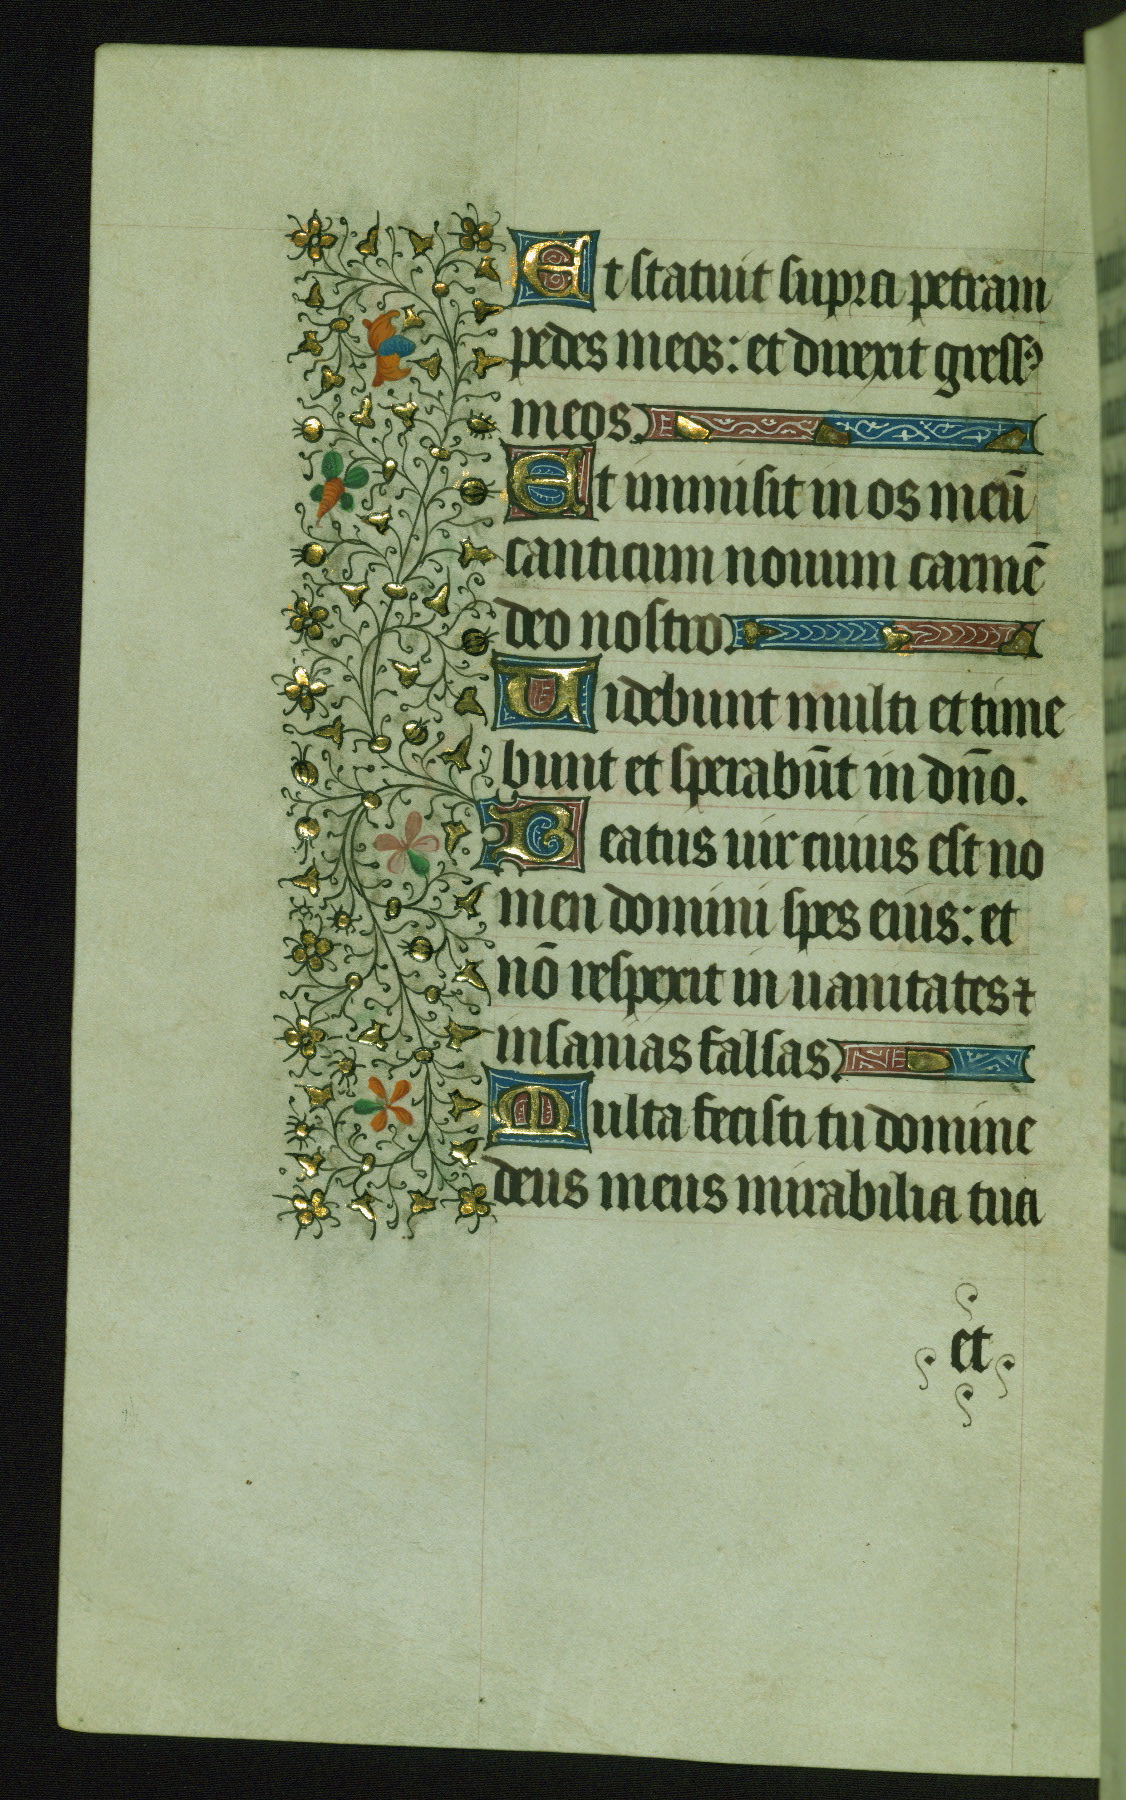 Et statuit supra petram
pedes meos: et direxit gressꝰ
meos.
Et inmisit in os meū
canticum nouum carmē
deo nostro.
Uidebunt multi et time
bunt et sperabūt in dn̄o.
Beatus uir cuius est no
men domini spes eius: et
nō respexit in uanitates ⁊
insanias falsas.
Multa fecisti tu domine
deus meus mirabilia tua
et